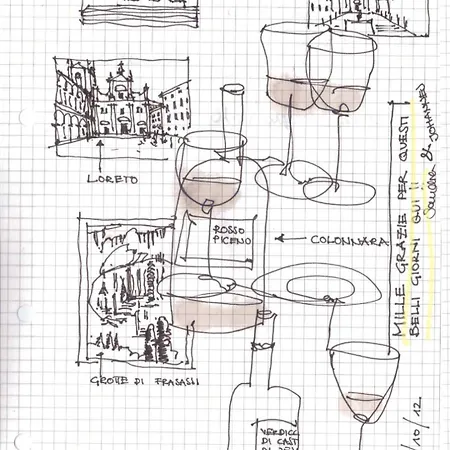 LORETO
ROSSO
PICENO
COLONNARA
GROTTE DI FRASASSI
VERDICC
DI CAST
MILLE GRAZIE PER QUESTI
BELLI GIORNI QUI !!
Sandra & JOHANNES
/10/12